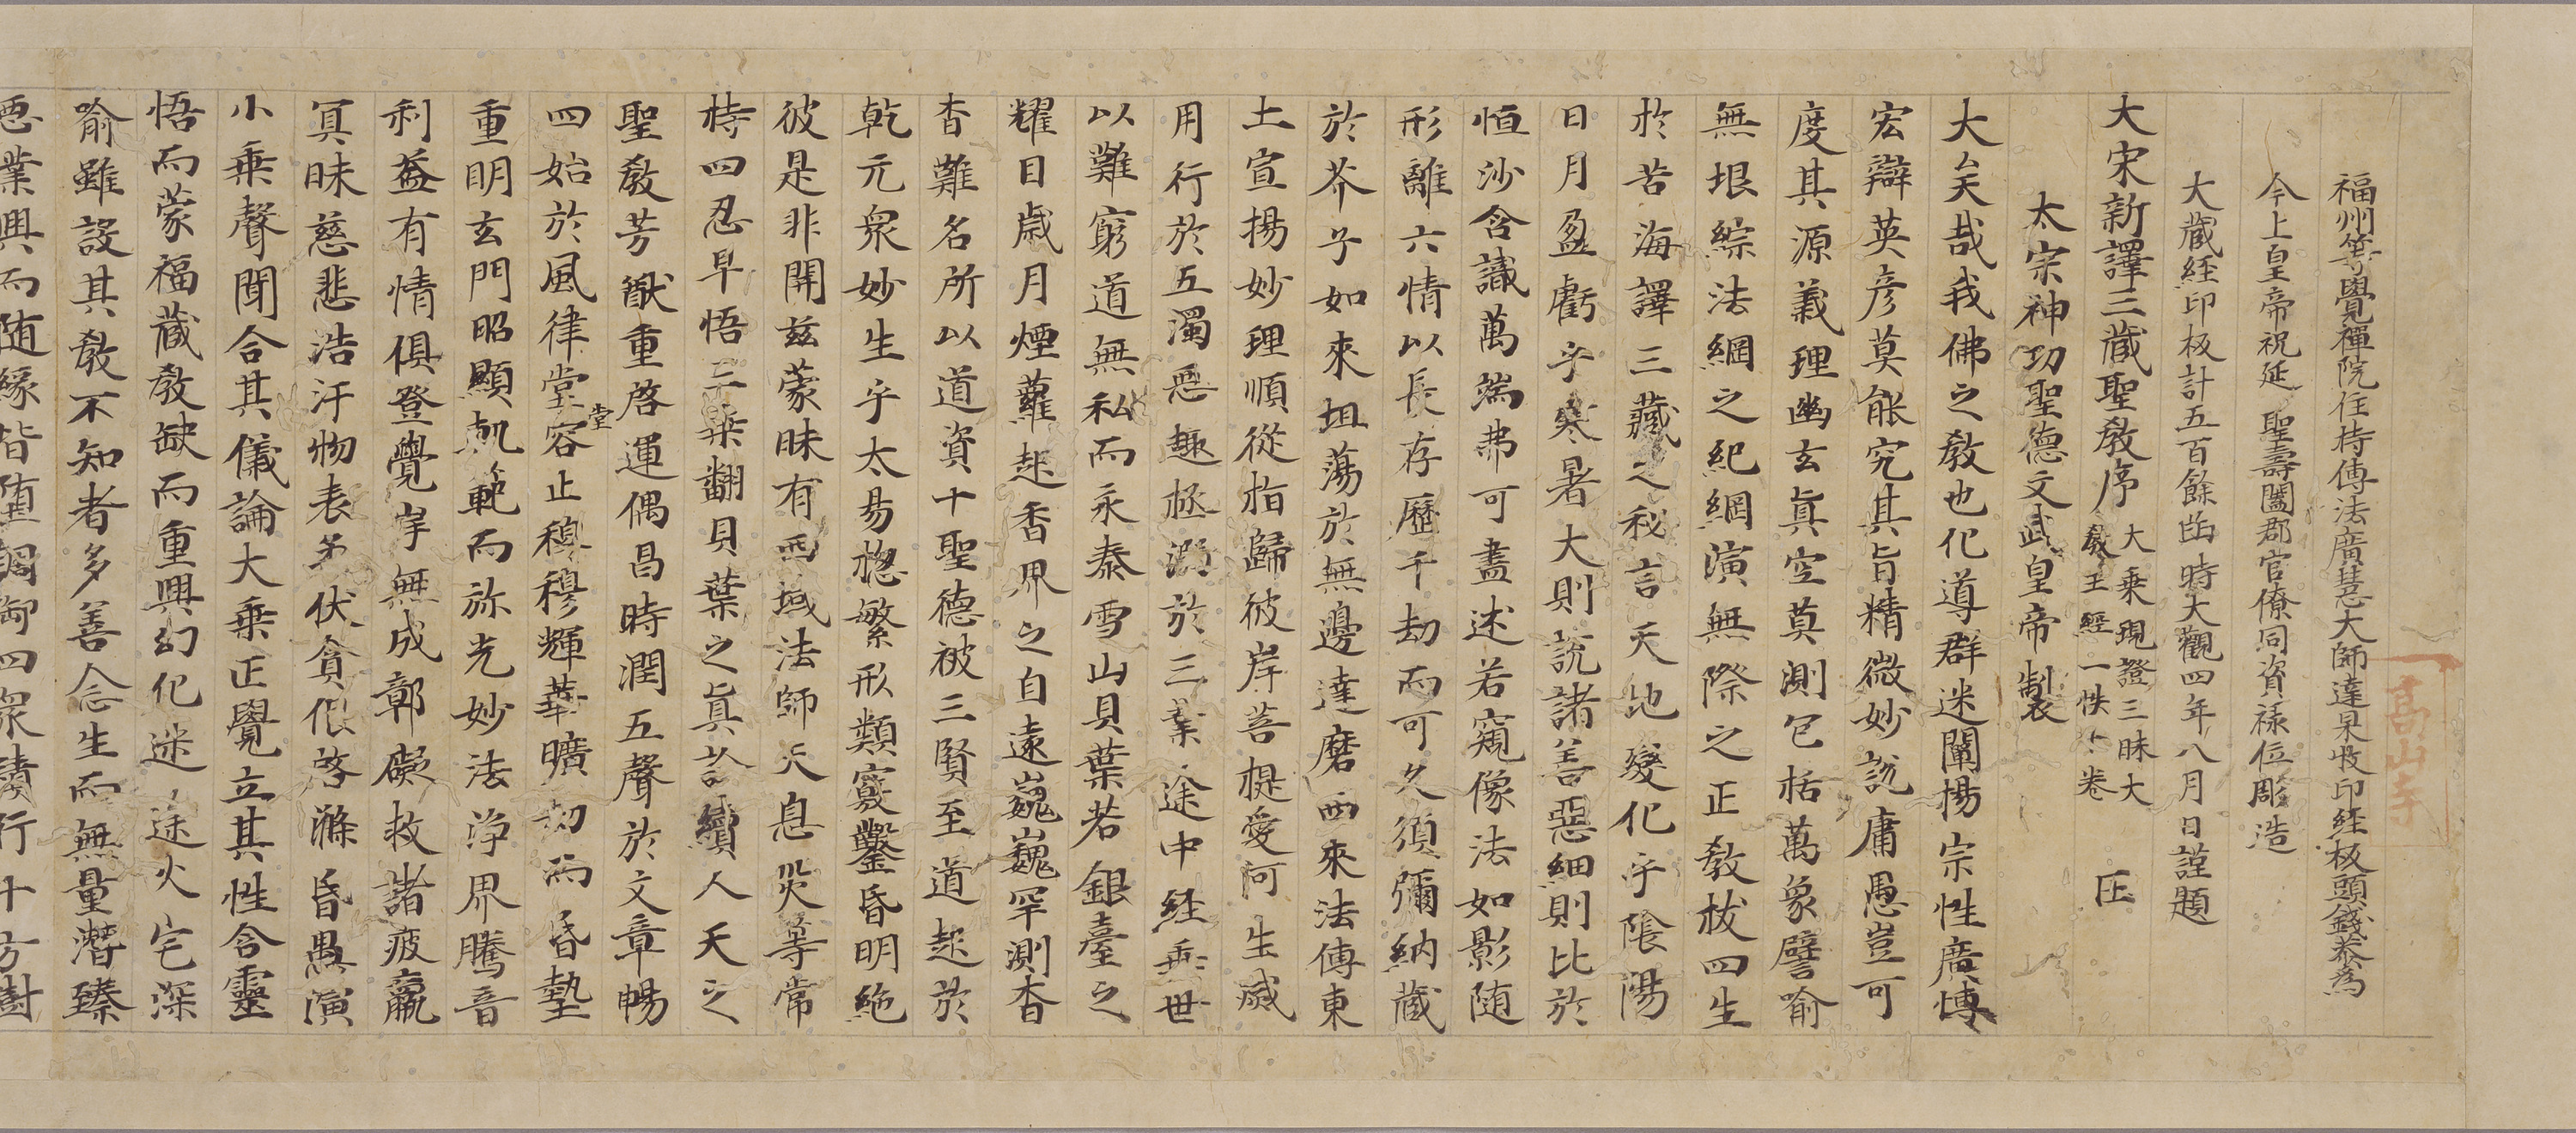 福州等覺禪院住持傳法廣慧大師達杲收印経板頭錢恭為
今上皇帝祝延 聖壽闔郡官僚同資禄位彫造
大蔵経印板計五百餘凾時大觀四年八月日謹題
大宋新譯三蔵聖教序 大乗現證三昧大教王經一帙卷
太宗神功聖德文武皇帝製
大矣哉我佛之教也化導群迷闡揚宗性廣愽
宏辯英彦莫能究其旨精微妙說庸愚豈可
度其源義理幽玄真空莫測包括萬象譬喻
無垠綜法綱之紀綱演無際之正教拔四生
於苦海譯三藏之秘言天地變化乎陰陽
日月盈虧乎寒暑大則說諸善惡細則比於
恒沙含識萬端弗可盡述若窺像法如影随
形離六情以長存歷千劫而可久須彌納蔵
於芥子如來坦蕩於無邊達磨西來法傳東
土宣揚妙理順從指歸彼岸菩提愛河生滅
用行於五濁惡趣拯溺於三業途中経垂世
以難窮道無私而永泰雪山貝葉若銀臺之
耀目歳月煙蘿起香界之自遠巍巍罕測杳
杳難名所以道資十聖德被三賢至道起於
乾元衆妙生乎太易揔繁形類竅鑿昏明絶
彼是非開兹蒙昧有西域法師天息災等常
持四忍早悟三乗翻貝葉之真詮續人天之
聖教芳猷重啓運偶昌時潤五聲於文章暢
四始於風律堂堂容止穆穆輝華曠劫而昏墊
重明玄門昭顯軌範而弥光妙法浄界騰音
利益有情俱登覺岸無成鄣礙救諸疲羸
冥昧慈悲浩汗物表柔伏貪佷啓滌昏愚演
小乗聲聞合其儀論大乗正覺立其性含靈
悟而蒙福蔵教缺而重興幻化迷途火宅深
喻雖設其教不知者多善念生而無量潛臻
惡業興而随縁皆墮調御四衆積行十方澍
高山寺